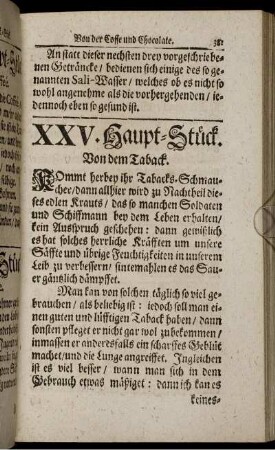 Von der Coffe und Chocolate. 381
An statt dieser nechsten drey vorgeschriebe-
nen Geträncke / bedienen sich einige des so ge-
nannten Sali-Wasser / welches ob es nicht so
wohl angenehme als die vorhergehenden / ie-
dennoch eben so gesund ist.
XXV. Haupt-Stück.
Von dem Taback.
Kommt herbey ihr Tabacks-Schmau-
cher / dann allhier wird zu Nachtheil die-
ses edlen Krauts / das so manchen Soldaten
und Schiffmann bey dem Leben erhalten /
kein Ausspruch geschehen: dann gewißlich
es hat solches herrliche Kräfften um unsere
Säffte und übrige Feuchtigkeiten in unserem
Leib zu verbessern / sintemahlen es das Sau-
er gäntzlich dämpffet.
Man kan von solchen täglich so viel ge-
brauchen / als beliebig ist: iedoch soll man ei-
nen guten und lüfftigen Taback haben / dann
sonsten pfleget er nicht gar wol zubekommen /
inmassen er anderdsfalls ein scharffes Geblüt
machet / und die Lunge angreiffet. Ingleichen
ist es viel besser / wann man sich in dem
Gebrauch etwas mäßiget: dann ich kan es
keines-